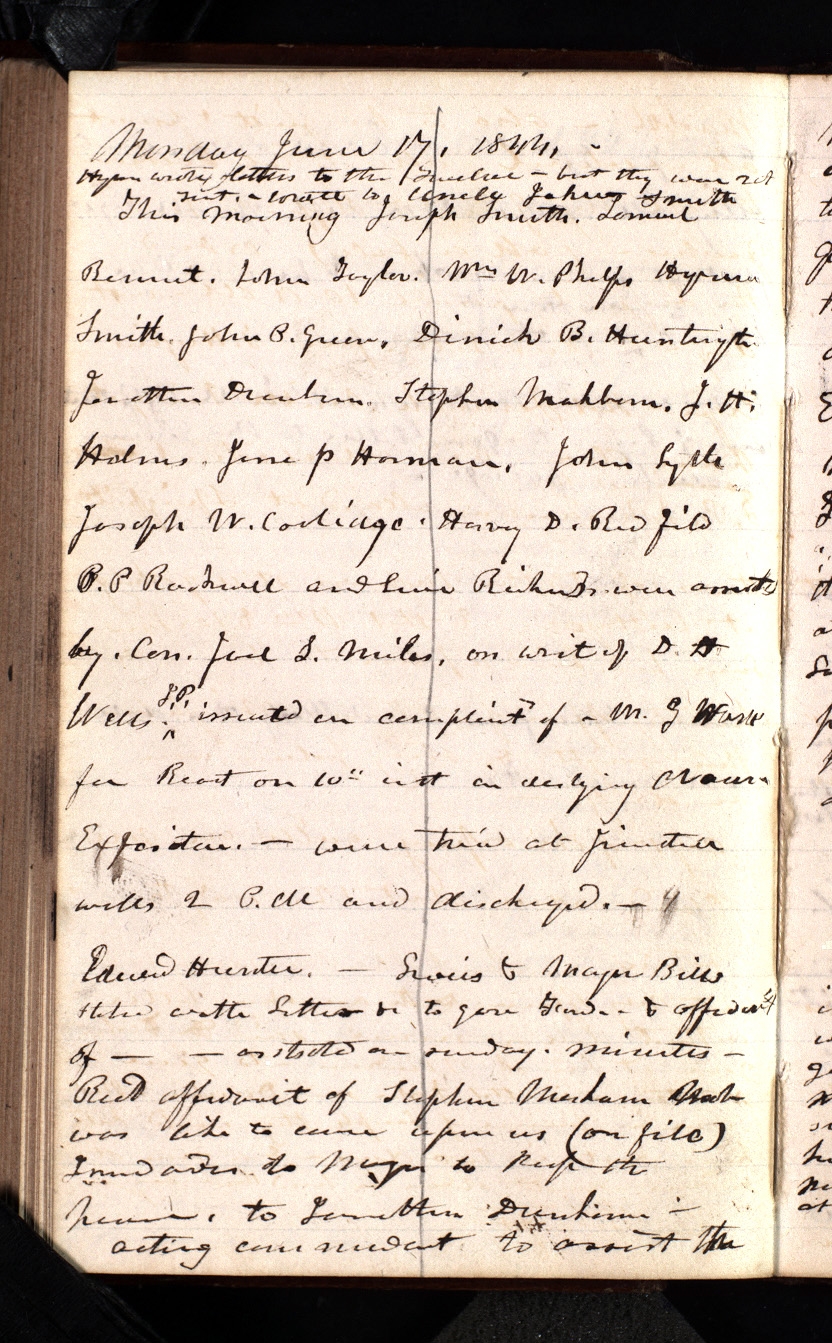 Monday June 17, 1844, -
Hyrum wrote letters to the Twelve - but they were not
sent. - wrote to Uncle John Smith
This morning Joseph Smith. Samuel
Bennet. John Taylor. Wm W. Phelps Hyrum
Smith. John P. Green, Dimick B. Huntington
Jonathan Dunham. Stephen Markham, J. H.
Holms. Jesse p Harmon, John Lytle
Joseph W. Coolidge. Harvey D. Redfild
P. P Rockwell and Levi Richards. were arrested
by. Con. Joel S. Miles, on writ of D. H
Wells J.P. issued on complaint of - W. G Ware
for Reiot on 10th inst in destying Nauvoo
Expositor. - were tried at Justice
wells 2 P.M and dischargd. -
Edward Hunter. - & Major Bills
with Letter to gove Ford. - & affidavit
of - - as stated on sunday. minutes -
Recd affidavit of Stephen Markham Mob
was like to come upon us (on file)
Issued orders to Major to keep the
peace, to Jonathan Dunham -
acting commedant to assist the